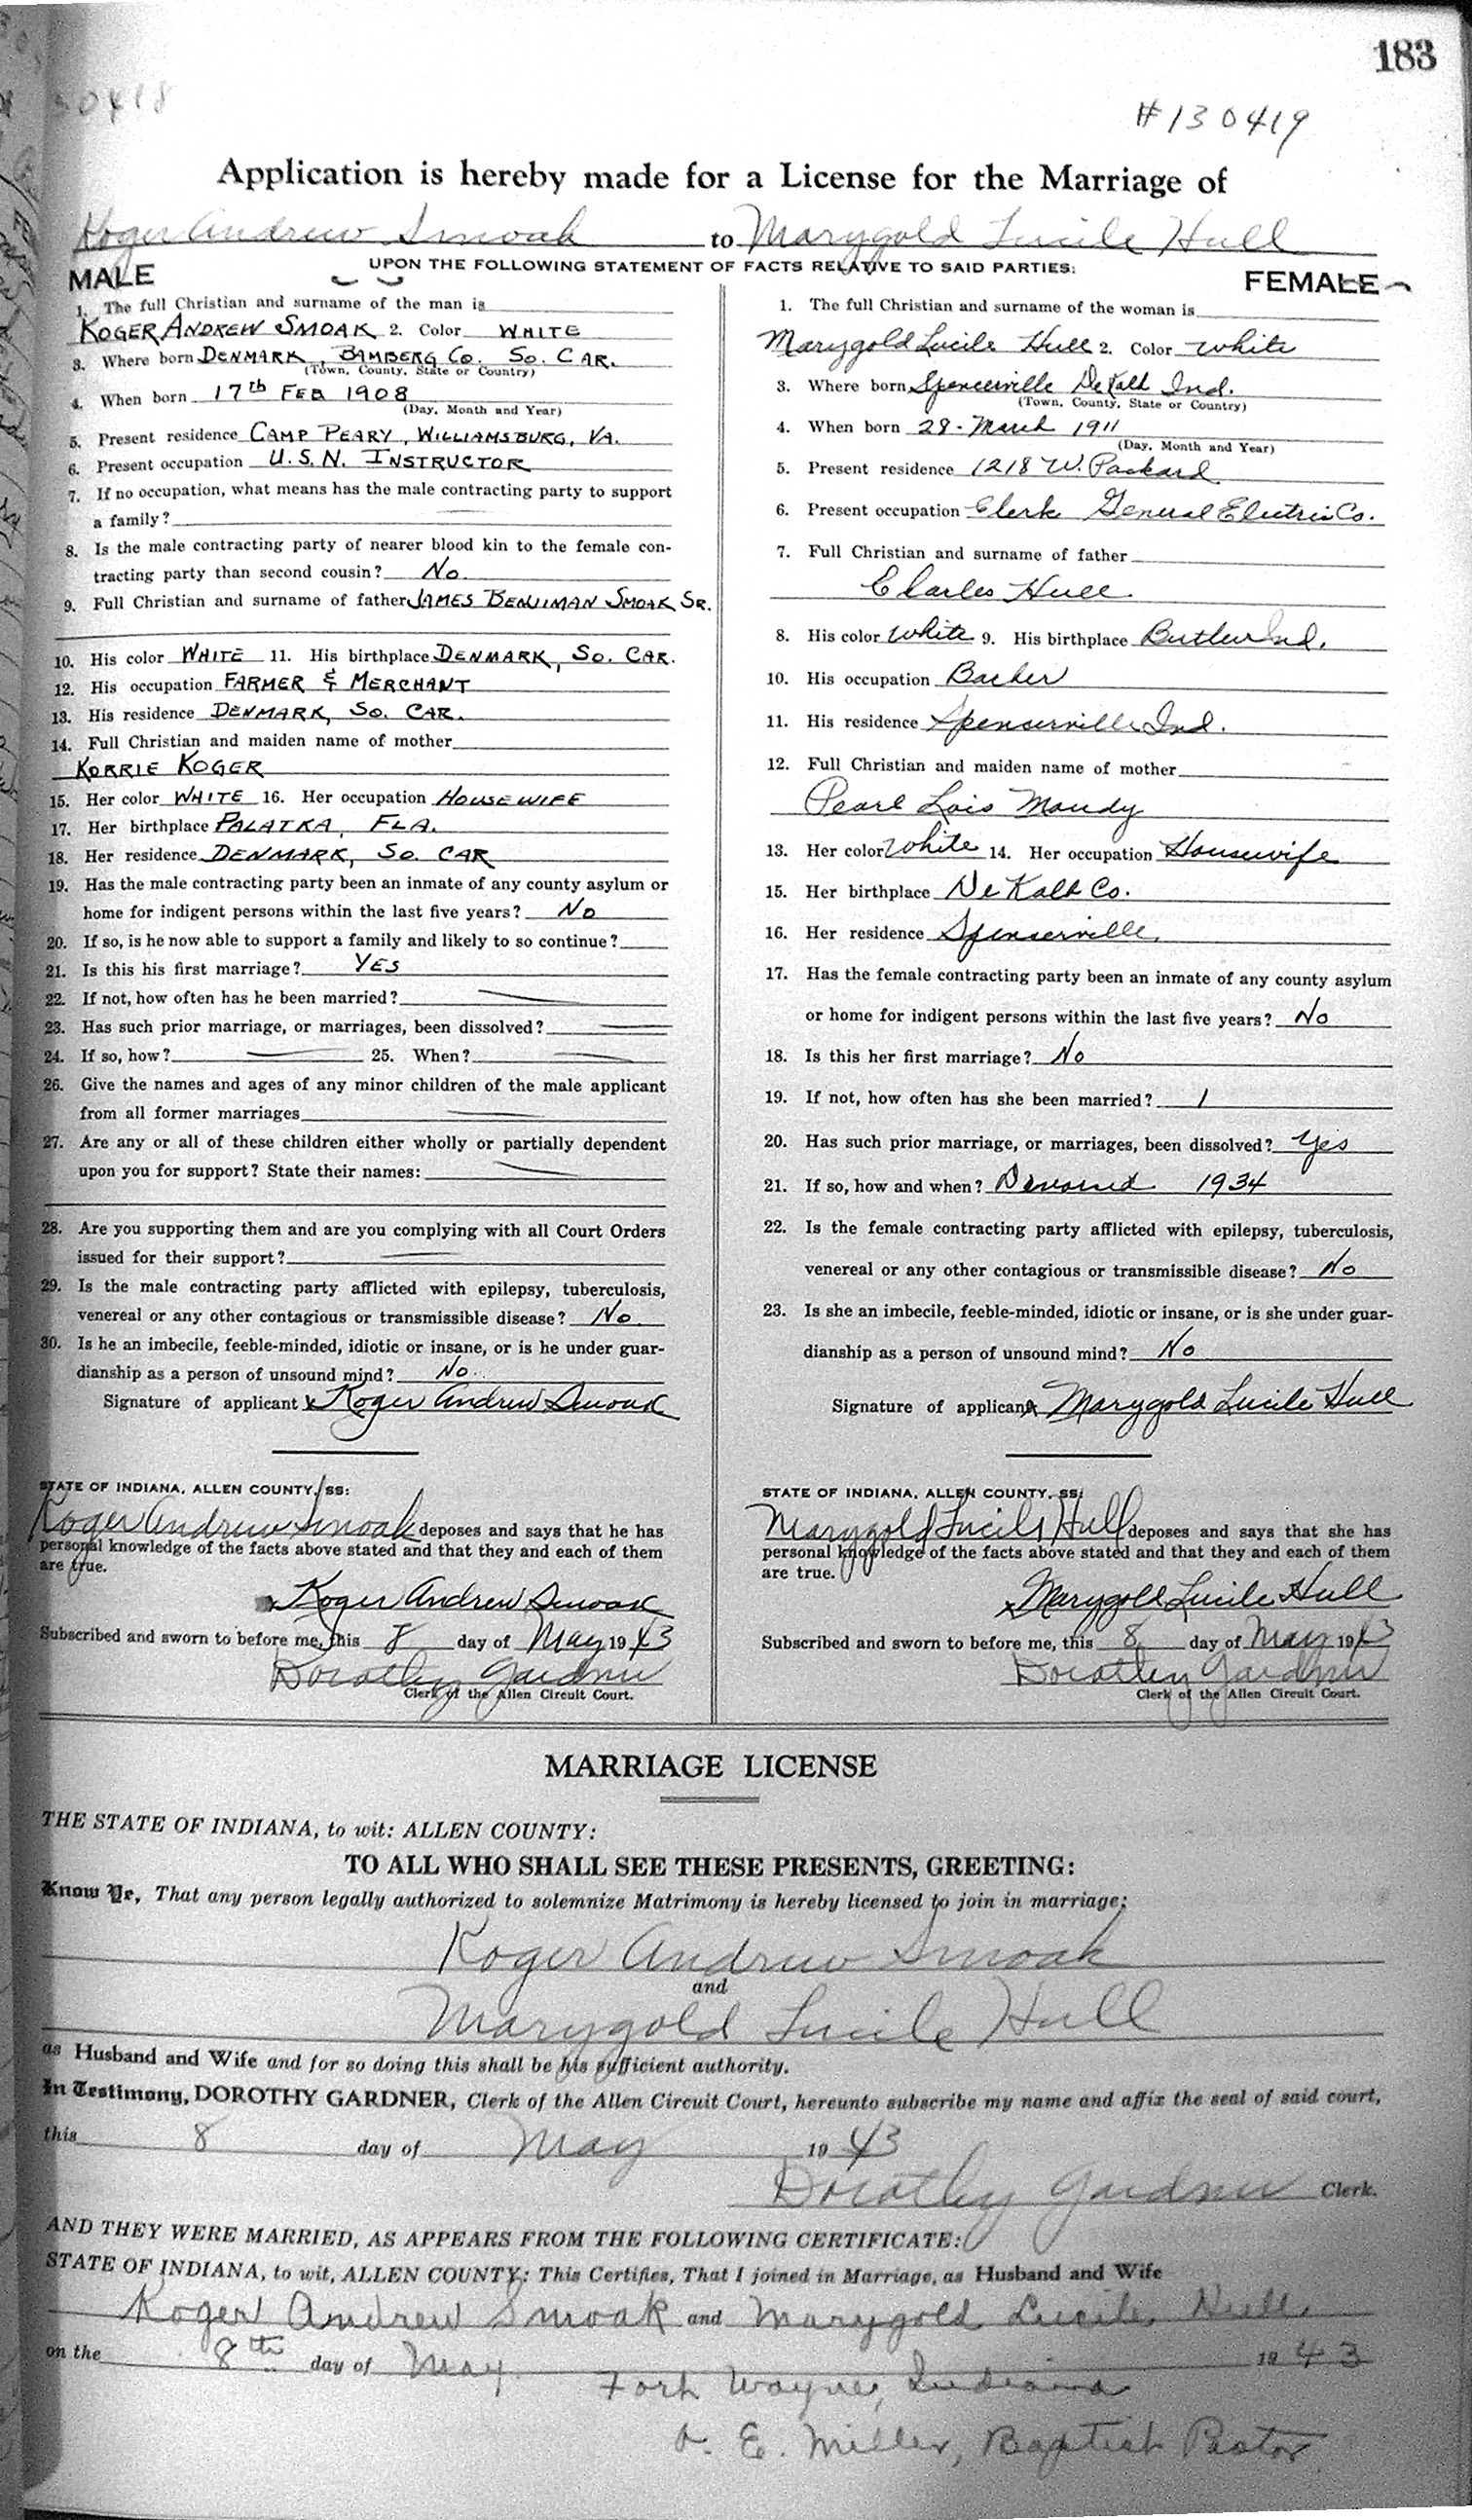 183
#130419
Application is hereby made for a License for the Marriage of
Koger Andrew Smoak to Marygold Lucile Hull
UPON THE FOLLOWING STATEMENT OF FACTS RELATIVE TO SAID PARTIES:
MALE
1. The full Christian and surname of the man is
KOGER ANDREW SMOAK 2. Color WHITE
3. Where born DENMARK, BAMBERG CO. SO. CAR.
(Town, County, State or Country)
4. When born 17th FEB 1908
(Day, Month and Year)
5. Present residence CAMP PEARY, WILLIAMSBURG, VA.
6. Present occupation U.S.N. INSTRUCTOR
7. If no occupation, what means has the male contracting party to support
a family?
8. Is the male contracting party of nearer blood kin to the female con-
tracting party than second cousin? No
9. Full Christian and surname of father JAMES BENJIMAN SMOAK SR.
10. His color WHITE 11. His birthplace DENMARK, SO. CAR.
12. His occupation FARMER & MERCHANT
13. His residence DENMARK, SO. CAR.
14. Full Christian and maiden name of mother
KORRIE KOGER
15. Her color WHITE 16. Her occupation HOUSEWIFE
17. Her birthplace PALATKA, FLA.
18. Her residence DENMARK, SO. CAR
19. Has the male contracting party been an inmate of any county asylum or
home for indigent persons within the last five years? No
20. If so, is he now able to support a family and likely to so continue?
21. Is this his first marriage? YES
22. If not, how often has he been married?
23. Has such prior marriage, or marriages, been dissolved?
24. If so, how? 25. When?
26. Give the names and ages of any minor children of the male applicant
from all former marriages
27. Are any or all of these children either wholly or partially dependent
upon you for support? State their names:
28. Are you supporting them and are you complying with all Court Orders
issued for their support?
29. Is the male contracting party afflicted with epilepsy, tuberculosis,
venereal or any other contagious or transmissible disease? No
30. Is he an imbecile, feeble-minded, idiotic or insane, or is he under guar-
dianship as a person of unsound mind? No.
Signature of applicant x Koger Andrew Smoak
STATE OF INDIANA, ALLEN COUNTY, SS:
Koger Andrew Smoak deposes and says that he has
personal knowledge of the facts above stated and that they and each of them
are true.
x Koger Andrew Smoak
Subscribed and sworn to before me, this 8 day of May 1943
Dorothy Gardner
Clerk of the Allen Circuit Court.
FEMALE
1. The full Christian and surname of the woman is
Marygold Lucile Hull 2. Color White
3. Where born Spencerville DeKalb Ind.
(Town, County, State or Country)
4. When born 28 - March 1911
(Day, Month and Year)
5. Present residence 1218 W. Packard
6. Present occupation Clerk General Electric Co.
7. Full Christian and surname of father
Charles Hull.
8. His color White 9. His birthplace Butler Ind.
10. His occupation Barber
11. His residence Spencerville Ind.
12. Full Christian and maiden name of mother
Pearl Lois Moudy
13. Her color White 14. Her occupation Housewife
15. Her birthplace DeKalb Co.
16. Her residence Spencerville.
17. Has the female contracting party been an inmate of any county asylum
or home for indigent persons within the last five years? No
18. Is this her first marriage? No
19. If not, how often has she been married? 1
20. Has such prior marriage, or marriages, been dissolved? Yes
21. If so, how and when? Divorced 1934
22. Is the female contracting party afflicted with epilepsy, tuberculosis,
venereal or any other contagious or transmissible disease? No
23. Is she an imbecile, feeble-minded, idiotic or insane, or is she under guar-
dianship as a person of unsound mind? No
Signature of applicant x Marygold Lucile Hull
STATE OF INDIANA, ALLEN COUNTY, SS:
Marygold Lucile Hull deposes and says that she has
personal knowledge of the facts above stated and that they and each of them
are true.
x Marygold Lucile Hull
Subscribed and sworn to before me, this 8 day of May 1943
Dorothy Gardner
Clerk of the Allen Circuit Court.
MARRIAGE LICENSE
THE STATE OF INDIANA, to wit: ALLEN COUNTY:
TO ALL WHO SHALL SEE THESE PRESENTS, GREETING:
Know Ye, That any person legally authorized to solemnize Matrimony is hereby licensed to join in marriage;
Koger Andrew Smoak
and
Marygold Lucile Hull
as Husband and Wife and for so doing this shall be his sufficient authority.
In Testimony, DOROTHY GARDNER, Clerk of the Allen Circuit Court, hereunto subscribe my name and affix the seal of said court,
this 8 day of May 1943
Dorothy Gardner Clerk.
AND THEY WERE MARRIED, AS APPEARS FROM THE FOLLOWING CERTIFICATE:
STATE OF INDIANA, to wit, ALLEN COUNTY: This Certifies, That I joined in Marriage, as Husband and Wife
Koger Andrew Smoak and Marygold Lucile Hull.
on the 8th day of May, 1943
Fort Wayne, Indiana
E. Miller, Baptist Pastor